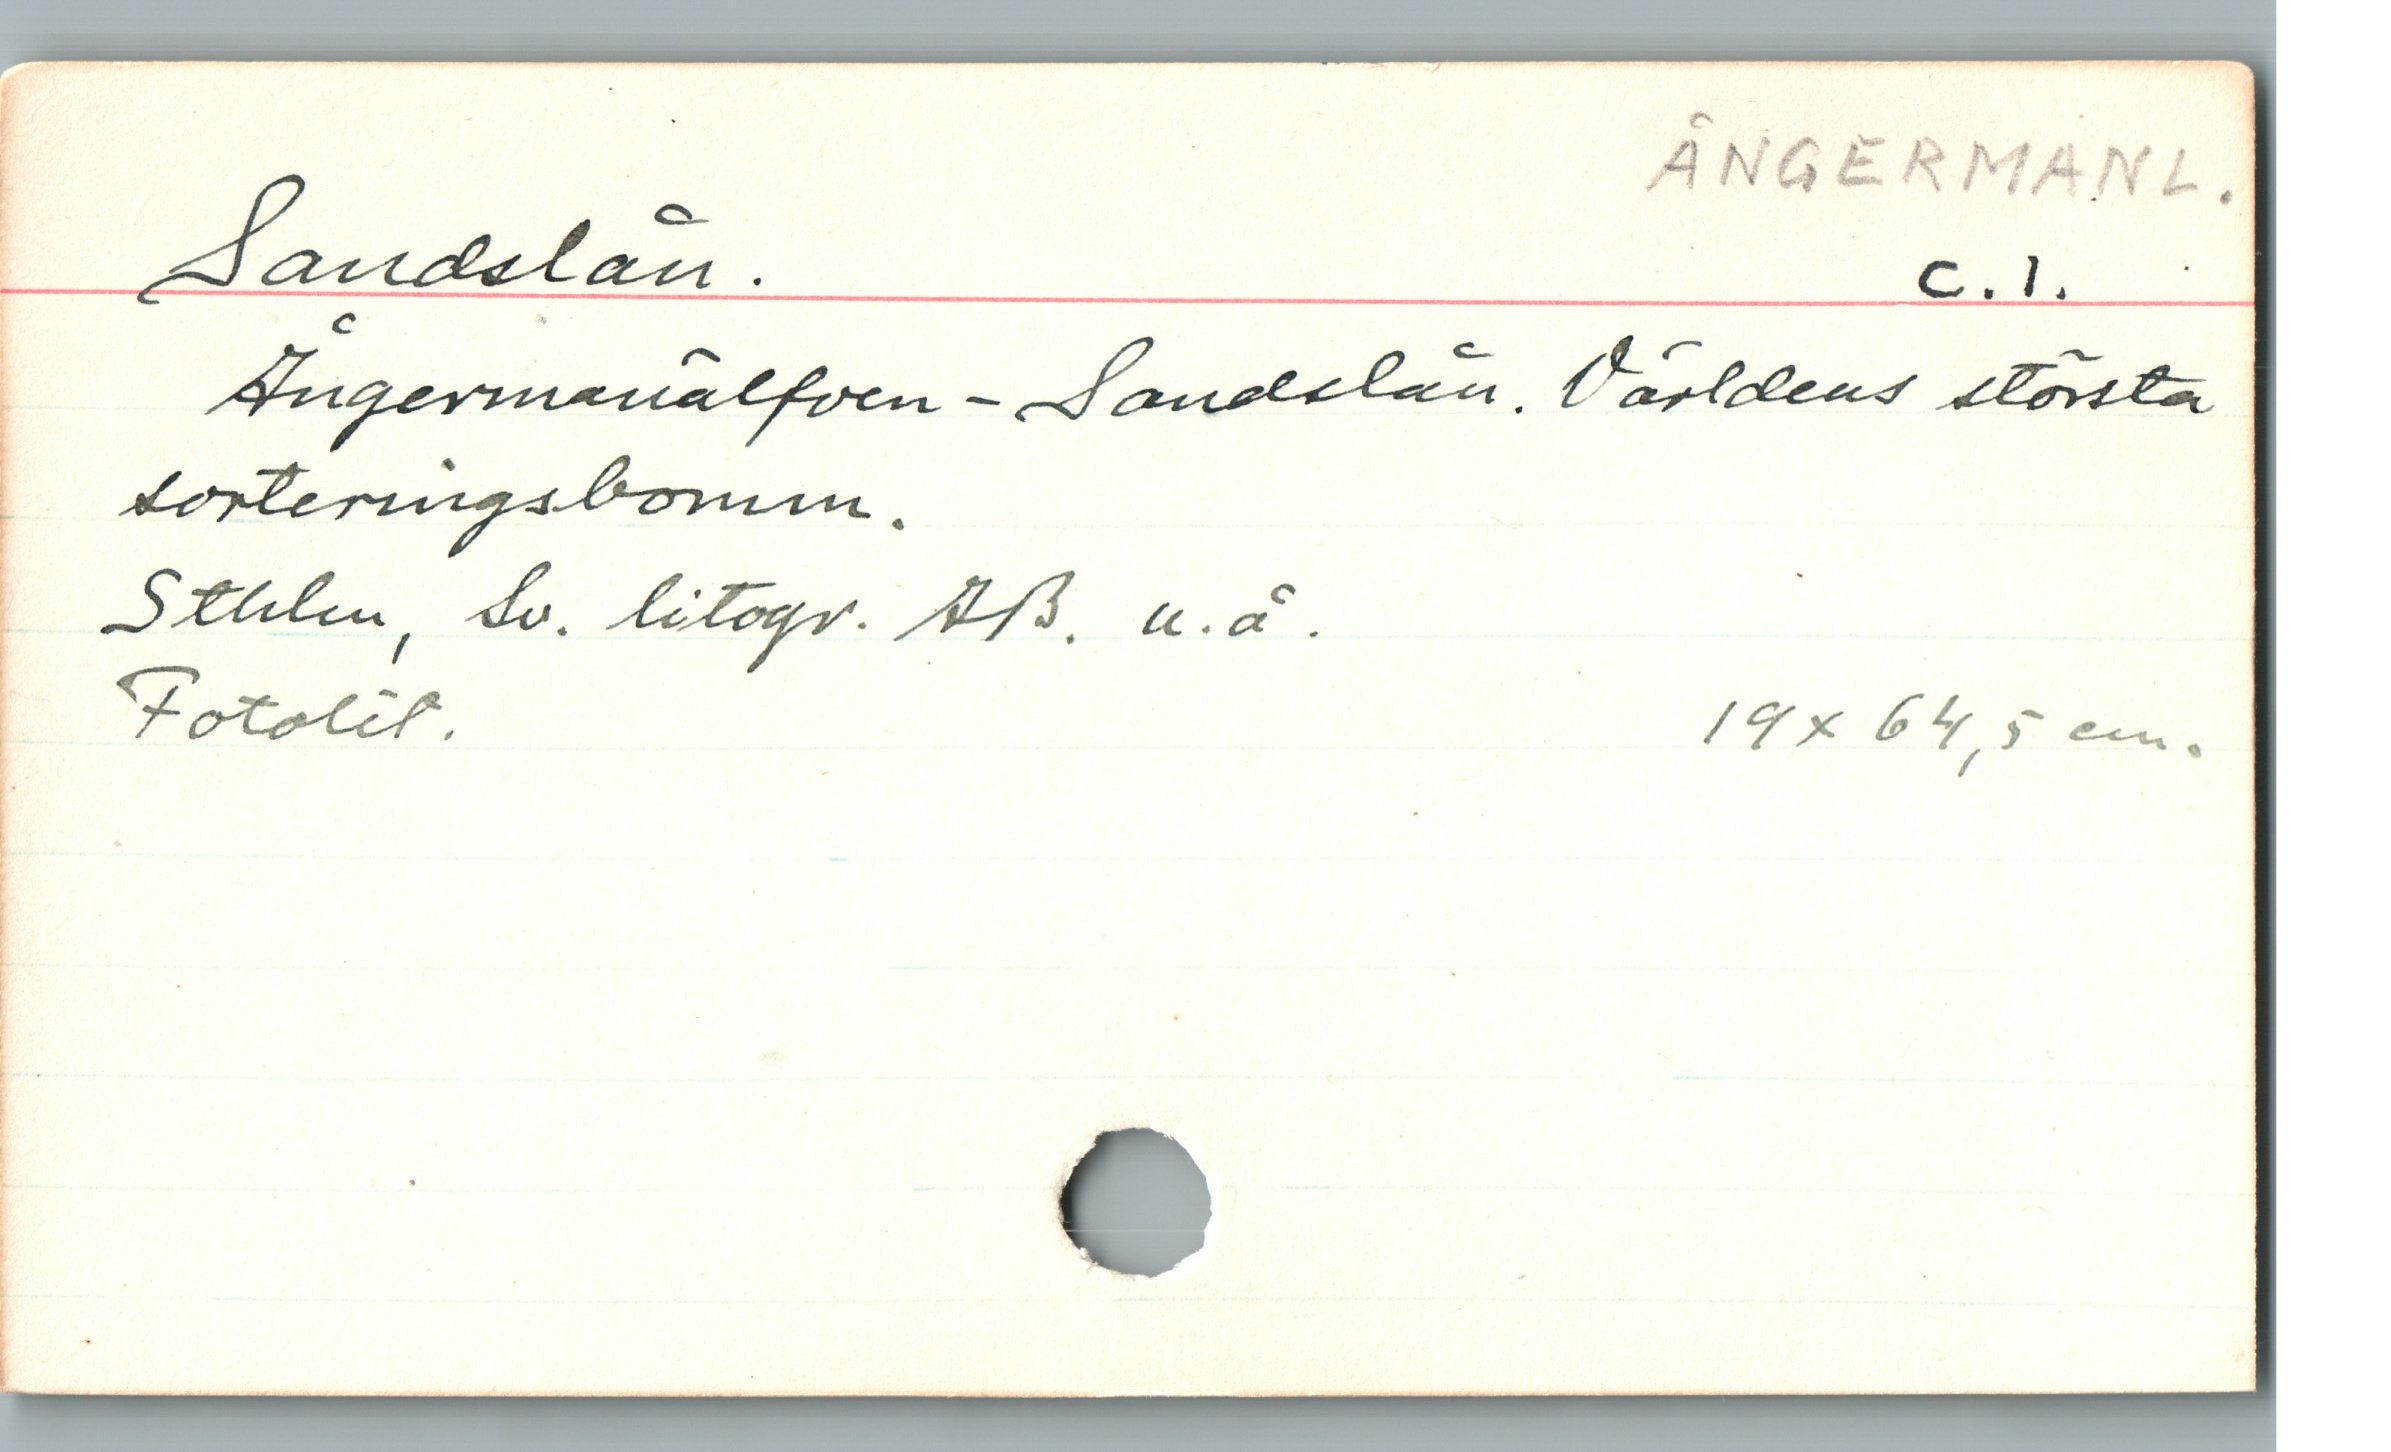 ÅNGERMANL.
Sandslån. C.1.
Ångermanälfven - Sandslån. Världens största
sorteringsbomm.
Sthlm, Sv. litogr. AB. u.å.
Fotolit. 19 x 64,5 cm.